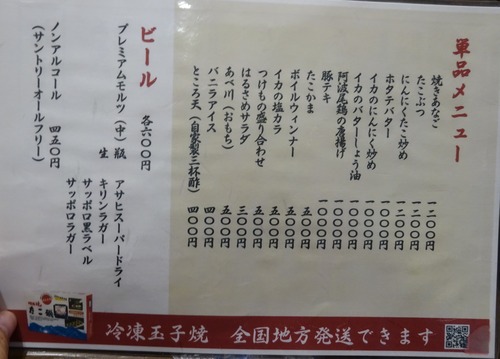 単品メニュー
焼きあなご 一二〇〇円
たこぶつ 一〇〇〇円
にんにくたこ炒め 一二〇〇円
ホタテバター 一二〇〇円
イカのにんにく炒め 一〇〇〇円
イカのバターしょう油 一〇〇〇円
阿波尾鶏の唐揚げ 一〇〇〇円
豚テキ 一〇〇〇円
たこかま 五〇〇円
ボイルウィンナー 五〇〇円
イカの塩カラ 五〇〇円
つけもの盛り合わせ 五〇〇円
はるさめサラダ 三〇〇円
あべ川（おもち） 五〇〇円
バニラアイス 四〇〇円
ところ天（自家製三杯酢） 四〇〇円
ビール 各六〇〇円
プレミアムモルツ（中）瓶 アサヒスーパードライ
生 キリンラガー
サッポロ黒ラベル
サッポロラガー
ノンアルコール 四五〇円
（サントリーオールフリー）
冷凍玉子焼 全国地方発送できます